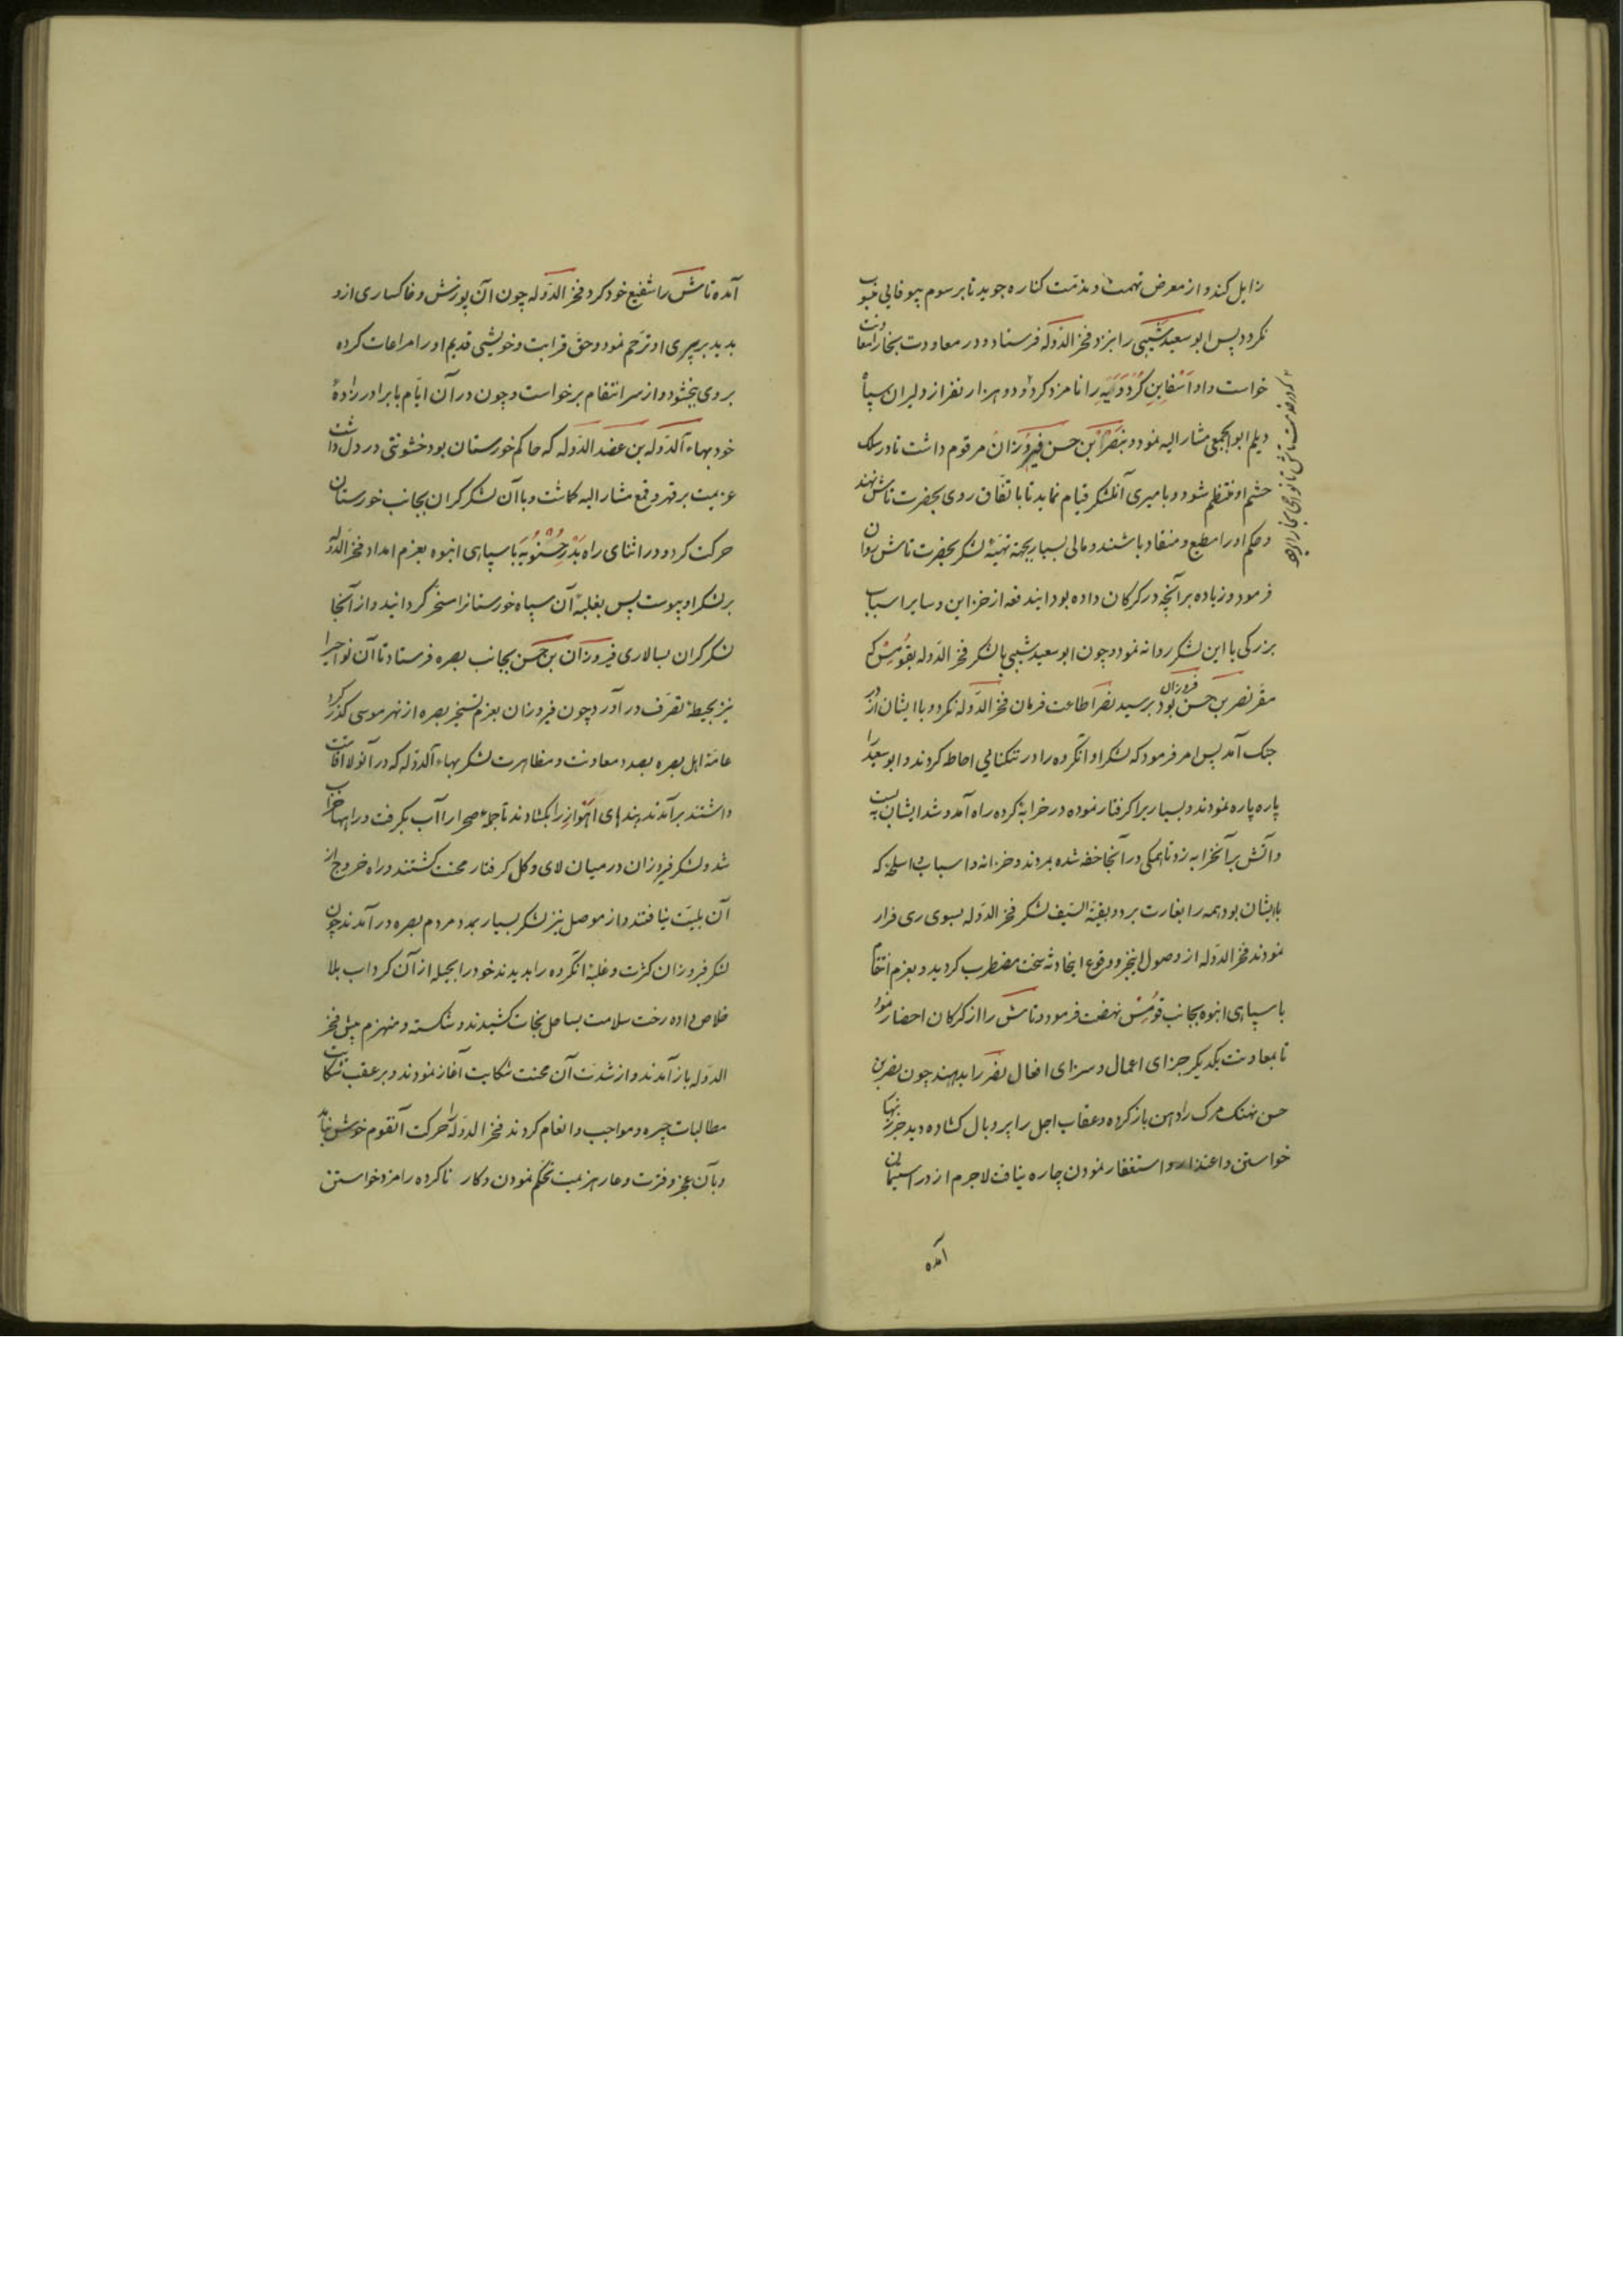 زایل کند و از معرض تهمت و مذمت کناره جوید تا برسوم بیوفایی منسوب
نکردد پس ابو سعید شیبی را بنزد فخر الدوله فرستاد و در معاودت بخارا معاونت
خواست و او اسفابن کردویه را نامزد کرد و دو هزار نفر از دلیران سپاه
دیلم ابوالجمعی مشار الیه نمود و بنصر بن حسن فیروزان مرقوم داشت تا در سلک
حشم او منتظم شود و بامیری آنلشکر قیام نماید تا باتفاق روی بحضرت تاش نهند
و حکم او را مطیع و منقاد باشند و مالی بسیار بجهة تهیئه لشکر بحضرت تاش روان
فرمود و زیاده بر آنچه در کرکان داده بود ایندفعه از خزاین و سایر اسباب
بزرکی با این لشکر روانه نمود و چون ابو سعید شیبی با لشکر فخر الدوله بقومش که
مقر نصر بن حسن فیروزان بود برسید نصر اطاعت فرمان فخر الدوله نکرد و با ایشان از در
جنک آمد پس امر فرمود که لشکر او آنکروه را در تنکنایی احاطه کردند و ابو سعید را
پاره پاره نمودند و بسیاریرا کرفتار نموده در خرابهٔ کرده راه آمد و شد ایشان به بست
و آتش بر آنخرابه زد تا همکی در آنجا خفه شده بمردند و خزانه و اسباب و اسلحه که
با ایشان بود همه را بغارت برد و بقیة السیف لشکر فخر الدوله بسوی ری فرار
نمودند فخر الدوله از وصول اینخبر و وقوع اینحادثه سخت مضطرب کردید و بعزم انتقام
با سپاهی انبوه بجانب قومش نهضت فرمود و تاش را از کرکان احضار نمود
تا بمعاونت یکدیکر جزای اعمال و سزای افعال نصر را بدهند چون نصر بن
حسن نهنک مرک را دهن باز کرده و عقاب اجل را پر و بال کشاده دید جز زنهار
خواستن و اعتذار و استغفار نمودن چاره نیافت لاجرم از در استیمان
آمده
آمده تاش را شفیع خود کرد فخر الدوله چون آن پوزش و خاکساری ازو
بدید بر پیری او ترحم نمود و حق قرابت و خویشی قدیم او را مراعات کرده
بر وی بخشود و از سر انتقام برخواست و چون در آن ایام با برادر زادهٔ
خود بهاء الدوله بن عضد الدوله که حاکم خوزستان بود خشونتی در دل داشت
عزیمت بر قهر و قمع مشار الیه کماشت و با آن لشکر کران بجانب خوزستان
حرکت کرد و در اثنای راه بدر حسنویه با سپاهی انبوه بعزم امداد فخر الدوله
بر لشکر او پیوست پس بغلبهٔ آن سپاه خوزستانرا مسخر کردانید و از آنجا
لشکر کران بسالاری فیروزان بن حسن بجانب بصره فرستاد تا آن نواحیرا
نیز بحیطهٔ تصرف در آورد چون فیروزان بعزم تسخیر بصره از نهر موسی کذر کرد
عامهٔ اهل بصره بصدد معاونت و مظاهرت لشکر بهاء الدوله که در آنولا اقامت
داشتند بر آمدند بندهای اهواز را بکشادند تا جملهٔ صحرا را آب بکرفت و راهها خراب
شد و لشکر فیروزان در میان لای و کل کرفتار محنت کشتند و راه خروج از
آن بلیت نیافتند و از موصل نیز لشکر بسیار بمدد مردم بصره در آمدند چون
لشکر فیروزان کثرت و غلبهٔ آنکروه را بدیدند خود را بحیله از آن کرداب بلا
خلاص داده رخت سلامت بساحل نجات کشیدند و شکسته و منهزم پیش فخر
الدوله باز آمدند و از شدت آن محنت شکایت آغاز نمودند و بر عقب شکایت
مطالبات جیره و مواجب و انعام کردند فخر الدوله را حرکت آنقوم خوش نیامد
و بآن عجز و فترت و عار هزیمت تحکم نمودن و کار ناکرده را مزد خواستن